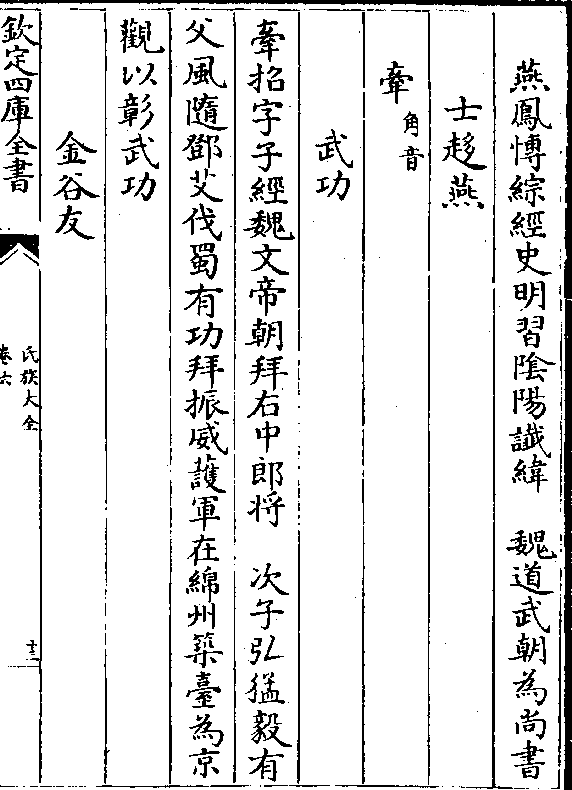 燕鳳慱綜經史明習陰陽讖緯　魏道武朝為尚書
士趍燕
牽角音
武功
牽招字子經魏文帝朝拜右中郎将　次子弘猛毅有
父風隨鄧艾伐蜀有功拜振威護軍在綿州築臺為京
觀以彰武功
金谷友
欽定四庫全書
氏族大全
卷六
十三